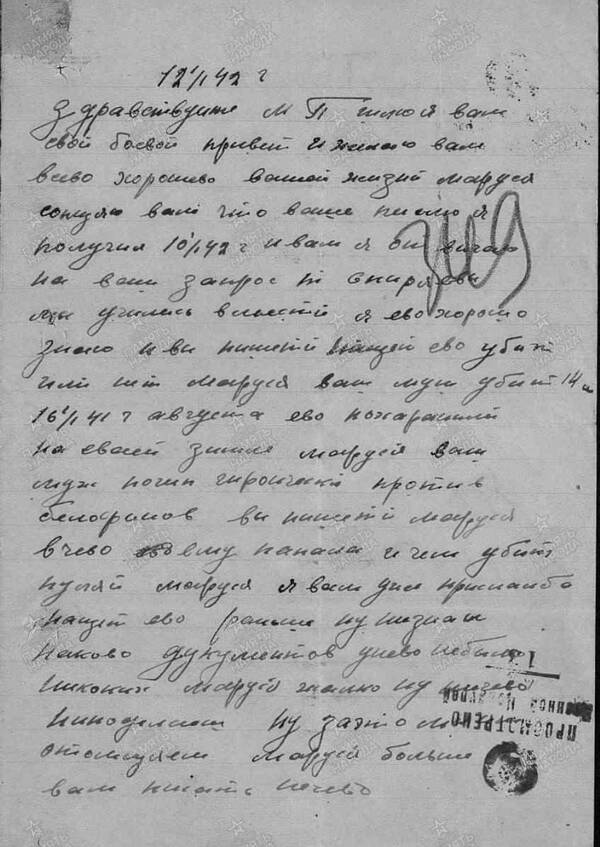 12/I 42 г
Здравствуите М П шлой вам
свой боевой привет и желаю вам
всево хорошево вашей жизни Маруся
сощуяю вам что ваше писмо я
получил 10/I 42 г и вам я отвичаю
на ваш запрос
мы учились вместй я ево хорошо
знаю и ви пишети нащет ево убит
или нет Маруся ваш муж убит 14 и
16/I 41 г августа ево похаранили
на своей зимле Маруся ваш
муж погиб гироически против
белофинов ви пишети Маруся
вчево ему папала и чем убит
пуляй Маруся я вам уже писал бо
нащет ево раньше ну незнал
каково дукументов унево небыло
никоких Маруся жалко ну ничево
ниподелаеш ну зато мы
отомщяем Маруся больше
вам писать нечево
ПРОСМОТРЕНО
Военной Цензурой